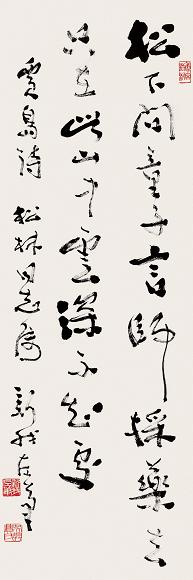 松下问童子言師採藥去
只在此山中雲深不知處
賈島詩 松林同志属 新我左筆